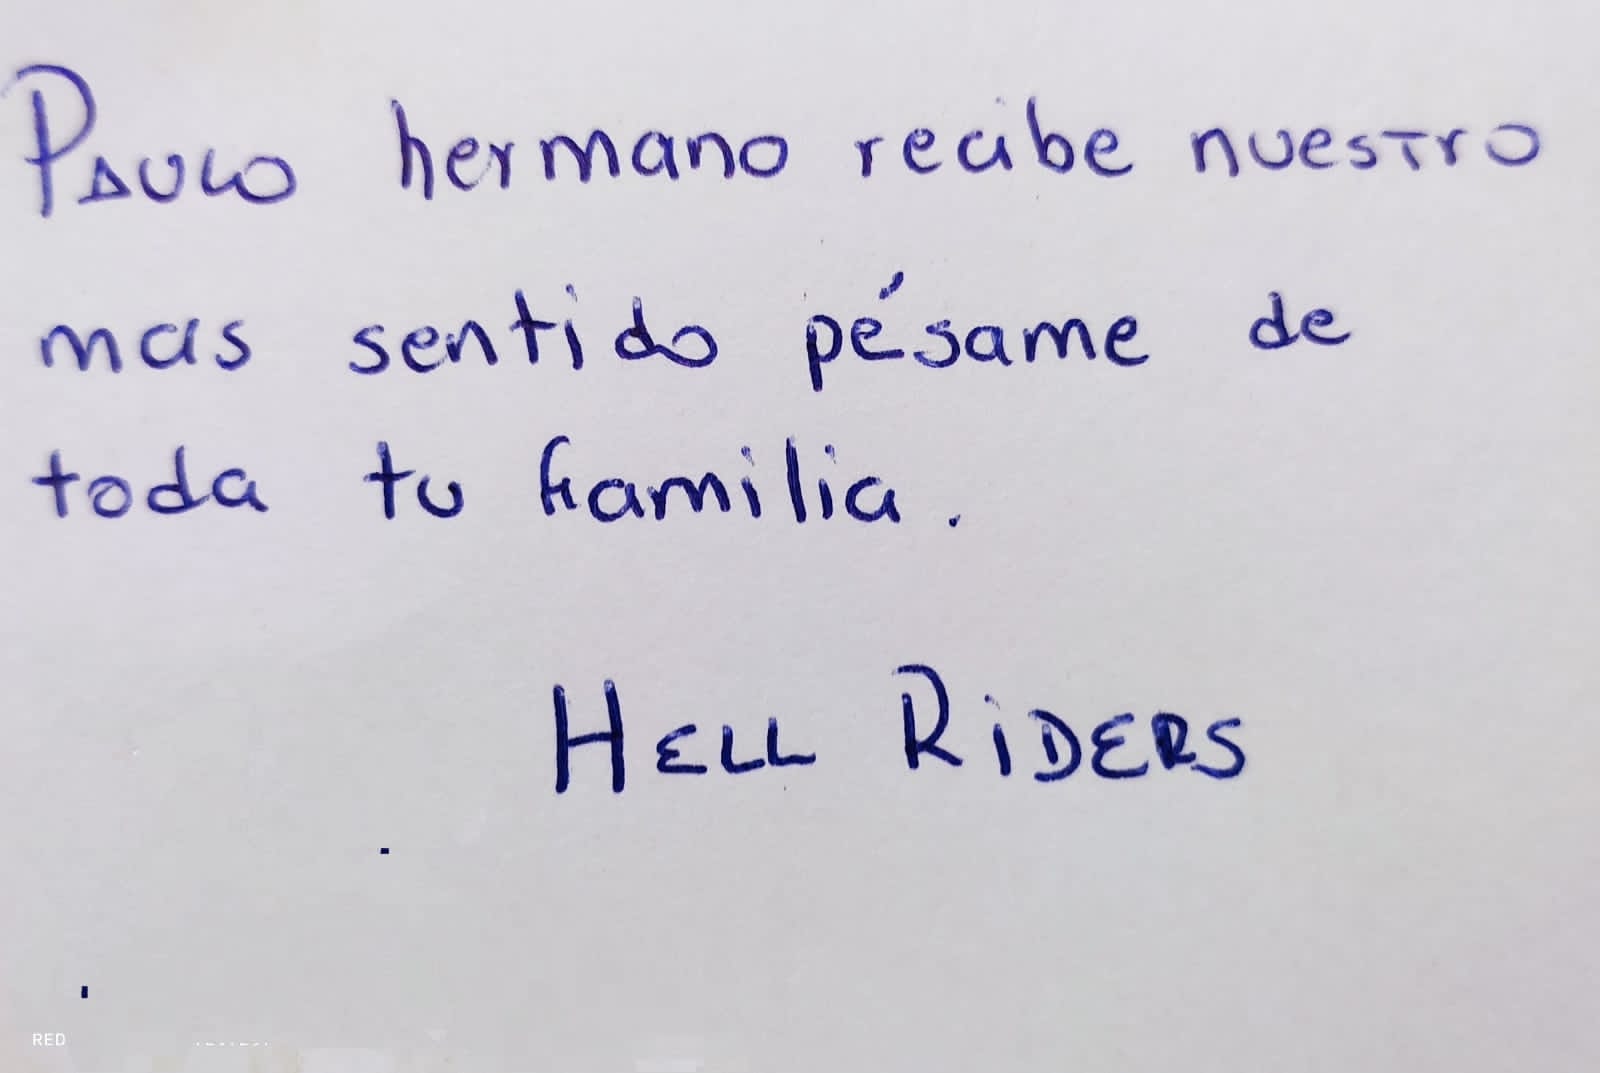 PAULO hermano recibe nuestro
mas sentido pésame de
toda tu familia.
HELL RiDERS
RED